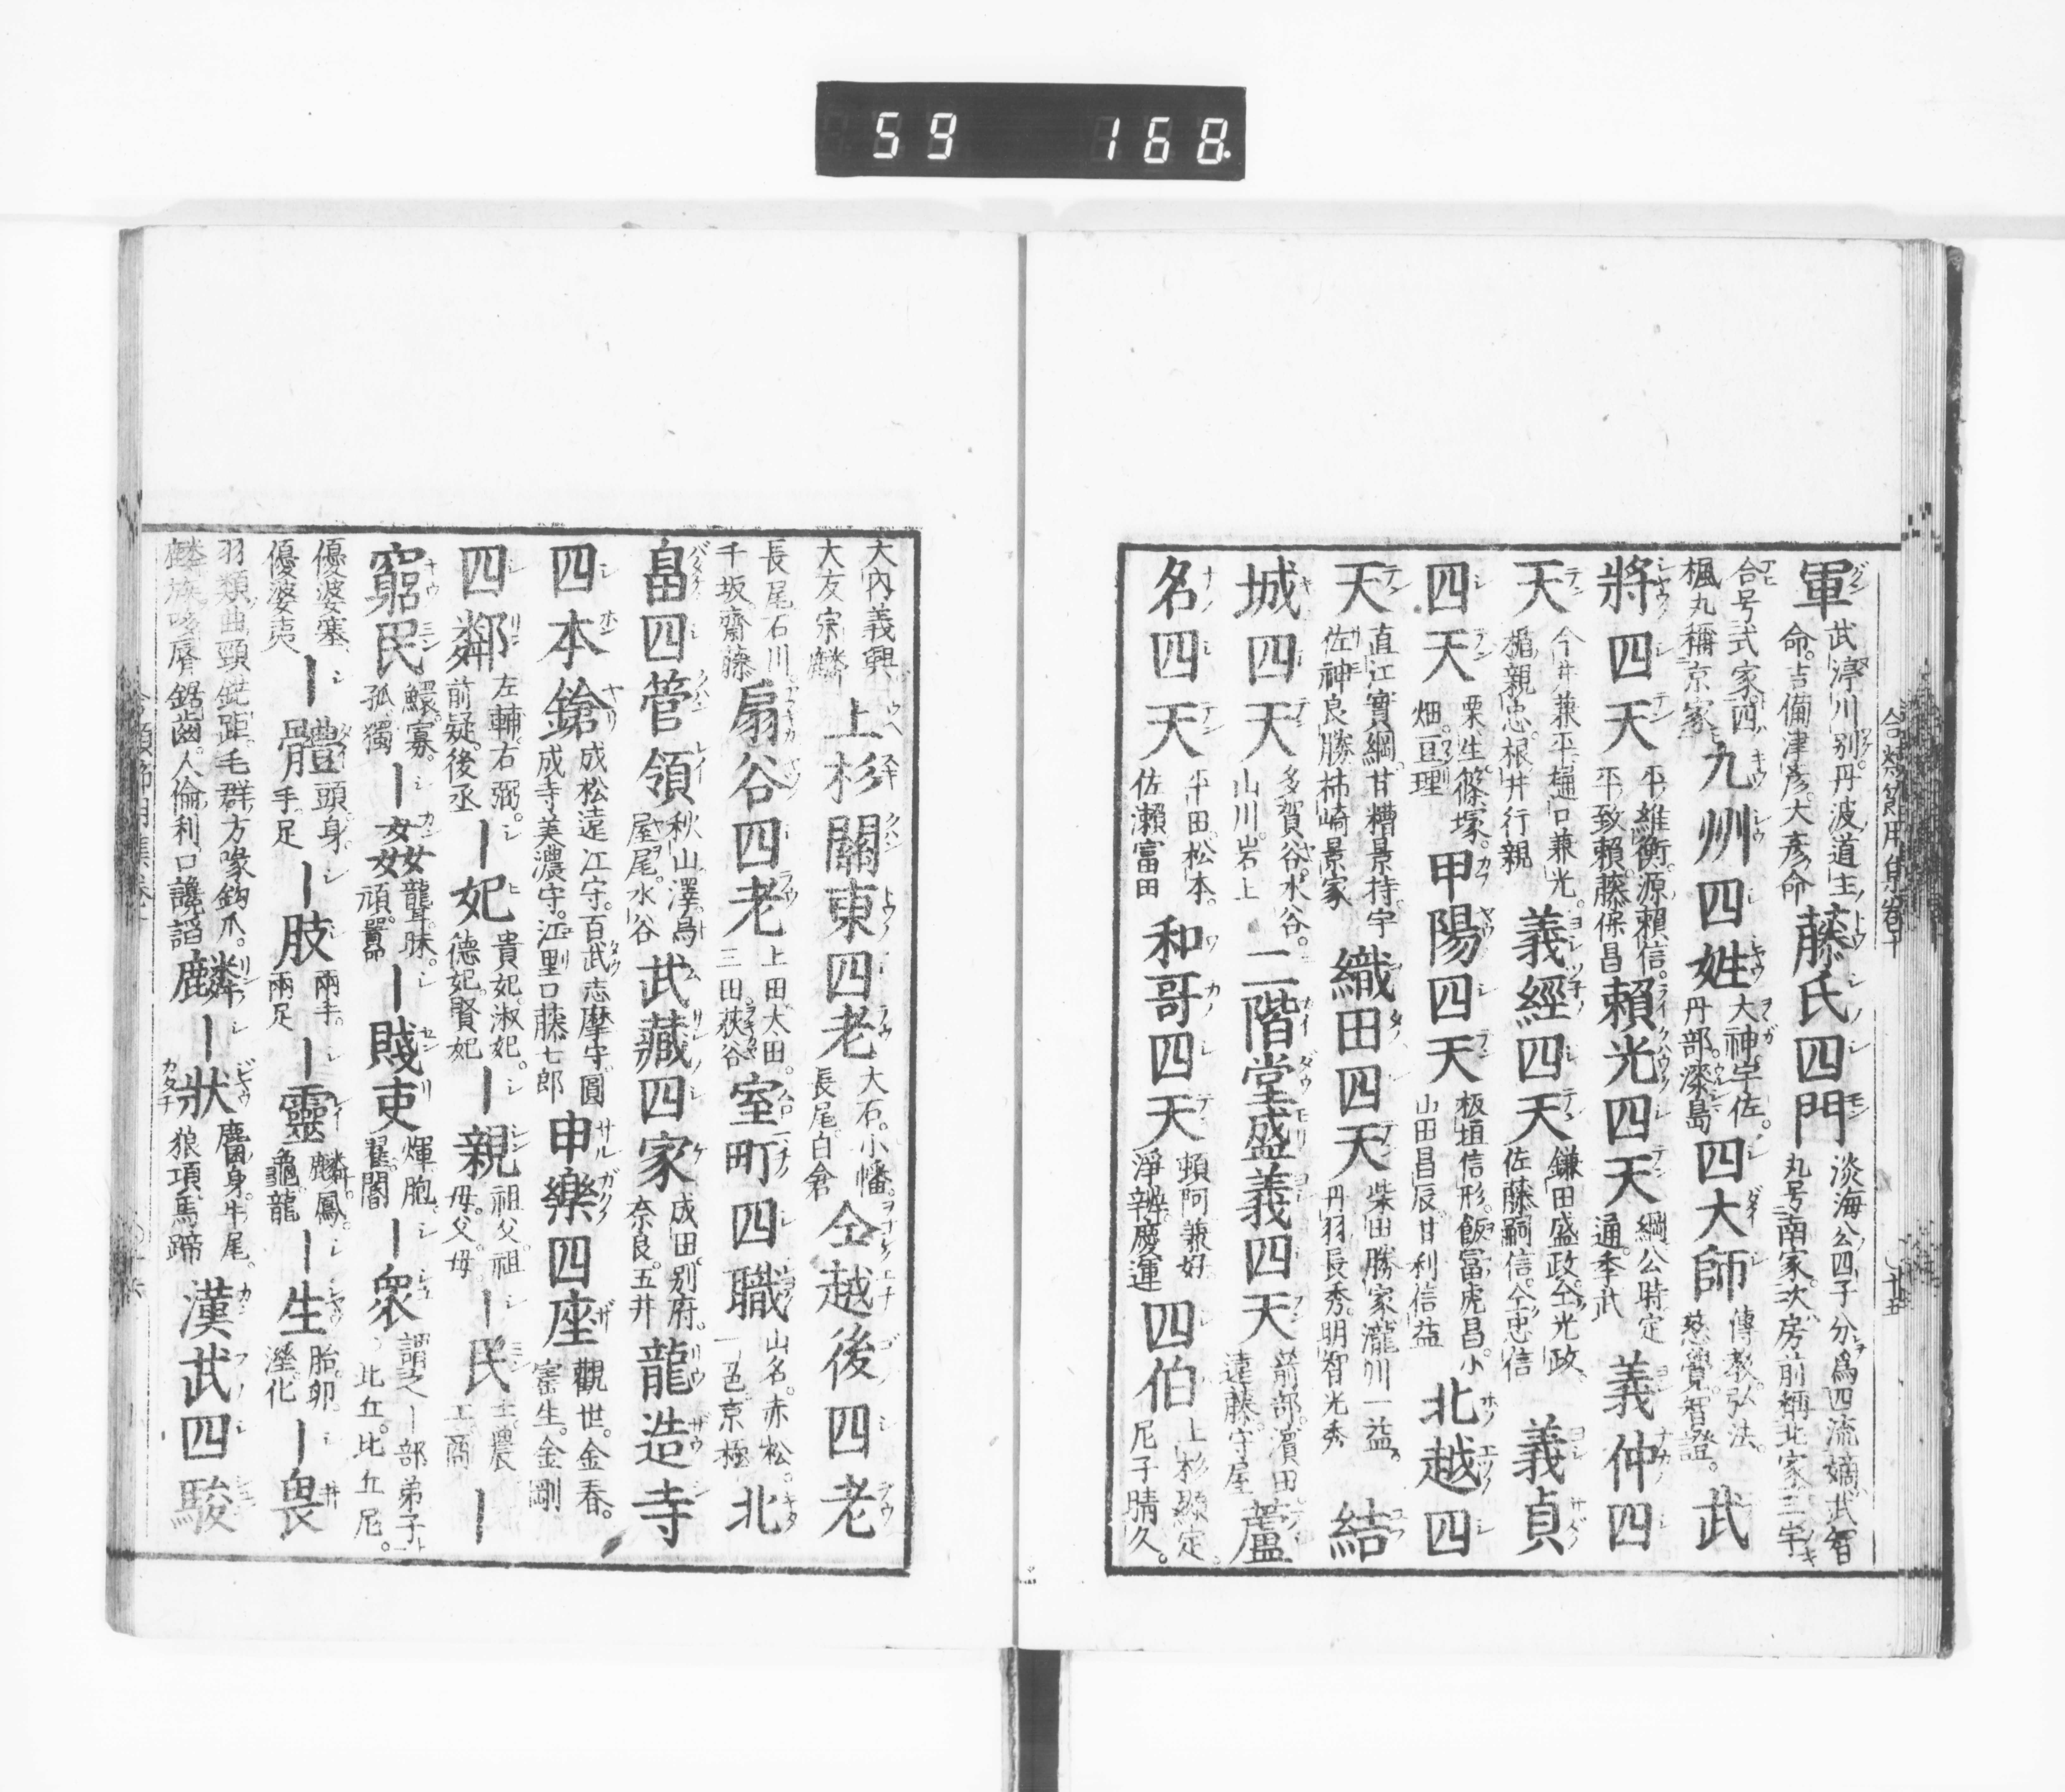 59 168
合類節用集卷十
廿五
軍 武渟川別丹波道主命。吉備津彦。大彦命 藤氏四門 淡海公四子分爲四流嫡武智丸号南家。次房前稱北家三宇
合号式家。四楓丸稱京家 九州四姓 大神宇佐。丹部。漆島 四大師 傳教。弘法。慈覺。智證。 武
將四天 平維衡。源賴信。平致賴。藤保昌 賴光四天 綱公時定通。季武 義仲四
天 今井兼平樋口兼光。楯親忠。根井行親 義經四天 鎌田盛政。仝光政。佐藤嗣信。仝忠信 義貞
四天 栗生。篠塚。畑。亘理 甲陽四天 板垣信形。飯富虎昌。小山田昌辰。甘利信益 北越四
天 直江實綱。甘糟景持。宇佐神良勝。柿崎景家 織田四天 柴田勝家瀧川一益。丹羽長秀。明智光秀 結
城四天 多賀谷。水谷。山川。岩上 二階堂盛義四天 箭部。濱田。遠藤。守屋 蘆
名四天 平田。松本。佐瀨富田 和哥四天 頓阿兼好。淨辨。慶運 四伯 上杉顯定。尼子晴久。
大内義興大友宗麟 上杉關東四老 大石。小幡。長尾白倉 仝越後四老
長尾石川。千坂。齋藤 扇谷四老 上田太田。三田。荻谷 室町四職 山名。赤松。一色京極 北
畠四管領 秋山。澤。鳥屋尾。水谷 武藏四家 成田。別府。奈良。五井 龍造寺
四本鎗 成松遠江守。百武志摩守。圓成寺美濃守。江里口藤七郎 申樂四座 觀世。金春。寳生。金剛
四鄰 左輔。右弼。前疑。後丞 ー妃 貴妃。淑妃。德妃。賢妃 ー親 祖父。祖母。父。母 ー民 士。農工。商 ー
窮民 鰥。寡。孤。獨 ー姦 聾。昧。頑。嚚 ー賤吏 煇。胞。翟。閽 ー衆 謂之ー部弟子比丘。比丘尼。
優婆塞優婆夷 ー體 頭。身。手。足 ー肢 兩手。兩足 ー靈 麟。鳳。龜。龍 ー生 胎。卵。溼。化 ー畏
羽類曲頸鋭距。毛群方喙鈎爪。鋸齒。人倫利口讒諂 麟ー狀 麕身。牛尾。狼項馬蹄 漢武四駿